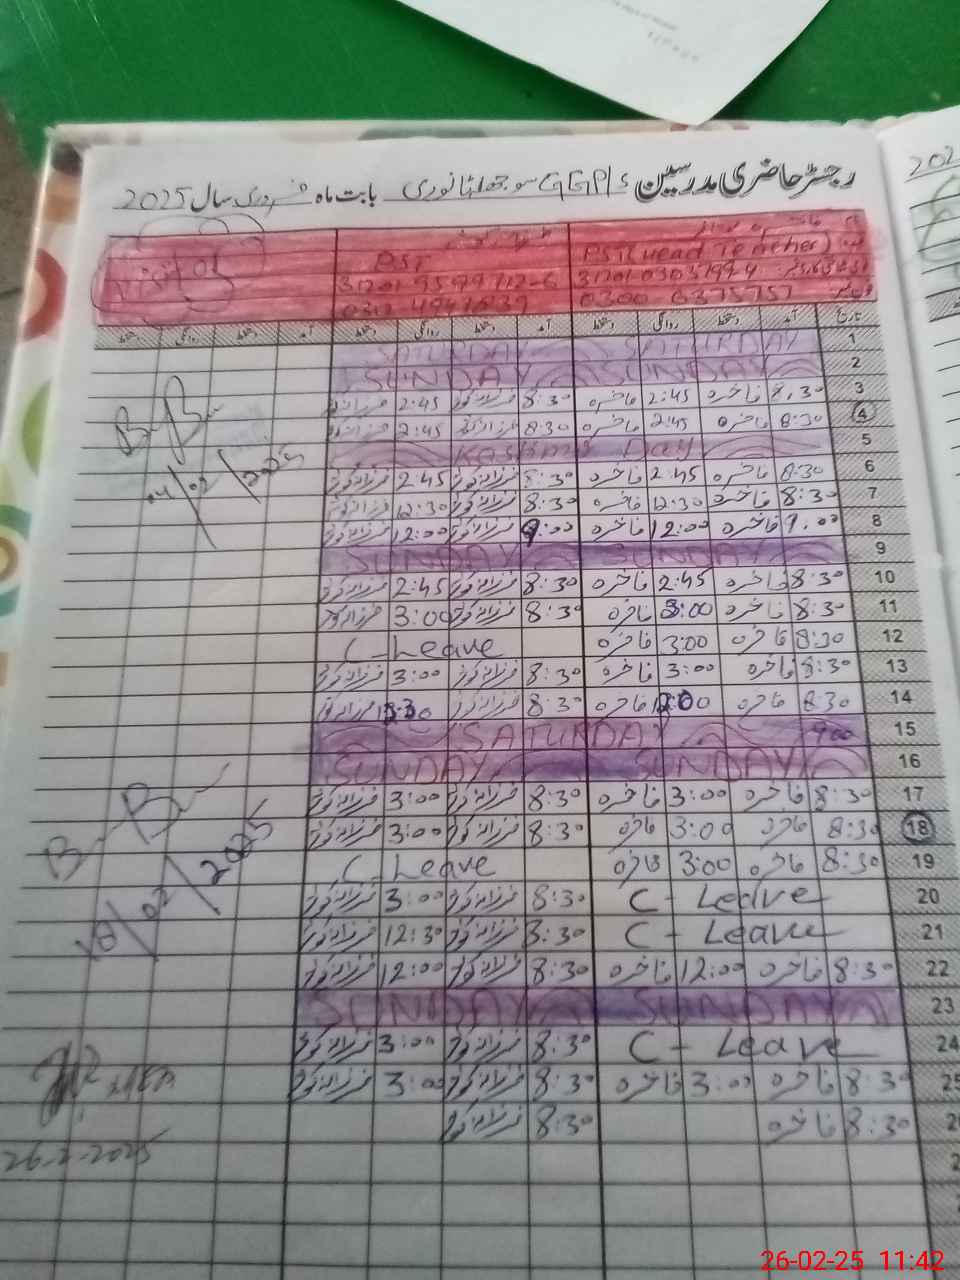 رجسٹر حاضری مدرسین GGPS سوجھلا نوری بابت ماہ فروری سال 2025
202
PST (Head Teacher) PST
0300 6375757
تاریخ آمد دستخط روانگی دستخط آمد دستخط روانگی دستخط آمد روانگی دستخط
1 SATURDAY SATURDAY
2 SUNDAY SUNDAY
3 8:30 فاخرہ 2:45 فاخرہ 8:30 فرزانہ کوثر 2:45
4 8:30 فاخرہ 2:45 فاخرہ 8:30 فرزانہ کوثر 2:45
5 Kashmir Day
6 8:30 فاخرہ 2:45 فاخرہ 8:30 فرزانہ کوثر 2:45 فرزانہ کوثر
7 8:30 فاخرہ 12:30 فاخرہ 8:30 فرزانہ کوثر 12:30 فرزانہ کوثر
8 9:00 فاخرہ 12:00 فاخرہ 9:00 فرزانہ کوثر 12:00 فرزانہ کوثر
9 SUNDAY SUNDAY
10 8:30 فاخرہ 2:45 فاخرہ 8:30 فرزانہ کوثر 2:45 فرزانہ کوثر
11 8:30 فاخرہ 3:00 فاخرہ 8:30 فرزانہ کوثر 3:00 فرزانہ کوثر
12 8:30 فاخرہ 3:00 فاخرہ C-Leave
13 8:30 فاخرہ 3:00 فاخرہ 8:30 فرزانہ کوثر 3:00 فرزانہ کوثر
14 8:30 فاخرہ فاخرہ 8:30 فرزانہ کوثر فرزانہ کوثر
15 900 SATURDAY
16 SUNDAY SUNDAY
17 8:30 فاخرہ 3:00 فاخرہ 8:30 فرزانہ کوثر 3:00 فرزانہ کوثر
18 8:30 فاخرہ 3:00 فاخرہ 8:30 فرزانہ کوثر 3:00 فرزانہ کوثر
19 8:30 فاخرہ 3:00 فاخرہ C-Leave
20 C- Leave 8:30 فرزانہ کوثر 3:00 فرزانہ کوثر
21 C- Leave 8:30 فرزانہ کوثر 12:30 فرزانہ کوثر
22 8:30 فاخرہ 12:00 فاخرہ 8:30 فرزانہ کوثر 12:00 فرزانہ کوثر
23 SUNDAY SUNDAY
24 C- Leave 8:30 فرزانہ کوثر 3:00 فرزانہ کوثر
25 8:30 فاخرہ 3:00 فاخرہ 8:30 فرزانہ کوثر 3:00 فرزانہ کوثر
8:30 فاخرہ 8:30 فرزانہ کوثر
04/02/2025
18/02/2025
26-2-2025
26-02-25 11:42